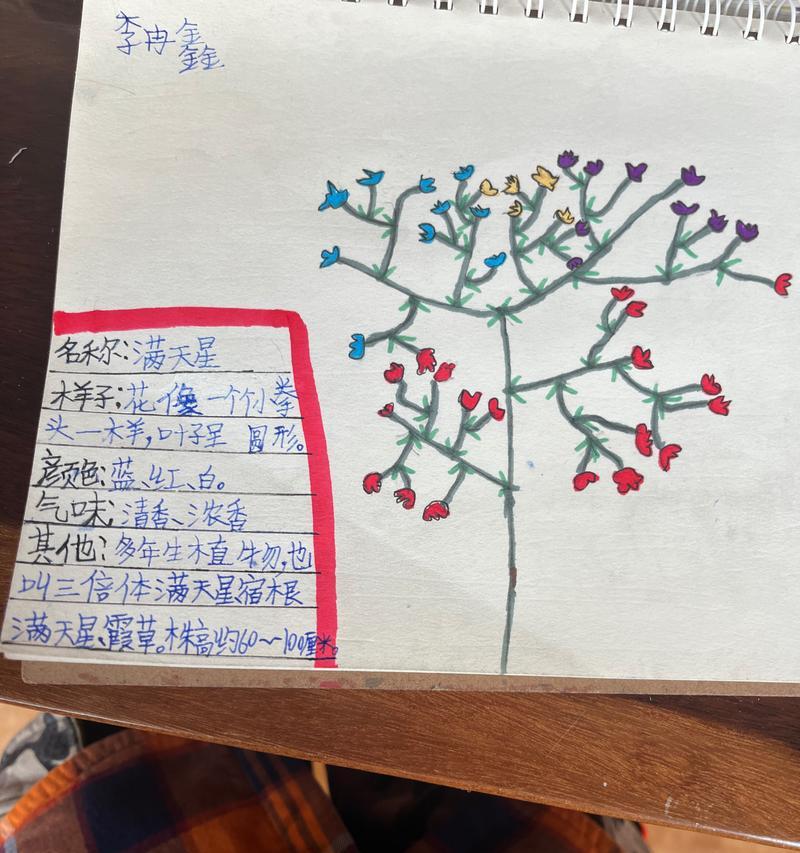 李冉鑫
名称:满天星
样子:花像一个小拳
头一样,叶子呈圆形。
颜色:蓝、红、白。
气味:清香、浓香
其他:多年生植物,也
叫三倍体满天星宿根
满天星、霞草。株高约60~100厘米。